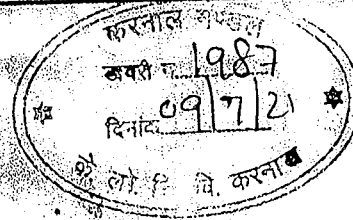 करनाल मण्डल
डायरी न. 1987
दिनांक 09/7/21
के. लो. नि. वि. करनाल